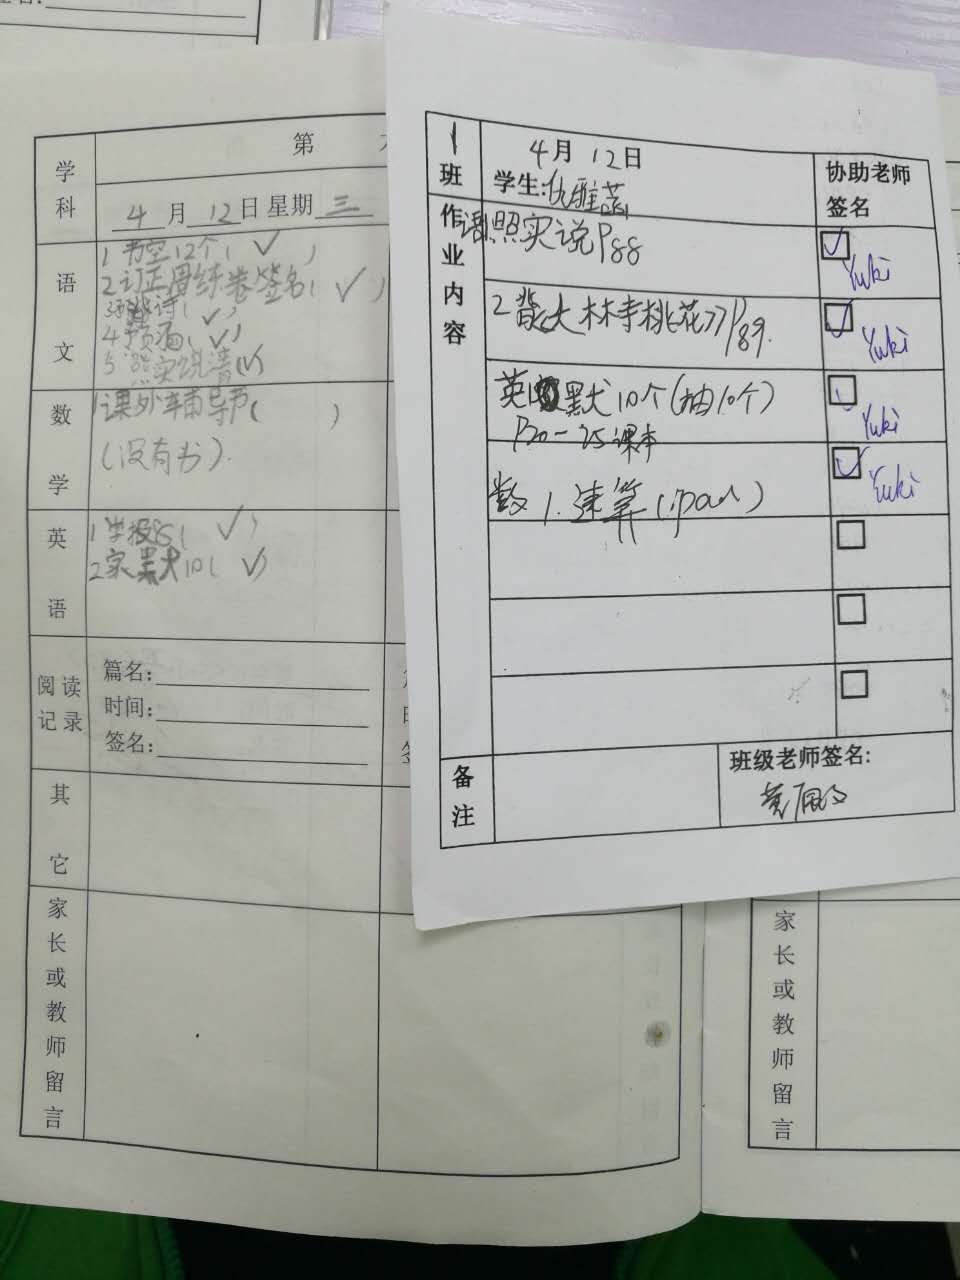 学科
第
4月12日星期三
语文
1书空12个(✓)
2订正周练卷签名(✓)
4预
5照实说
数学
1课外辅导书( )
(没有书)
英语
1学校
2家默10(✓)
阅读记录
篇名:
时间:
签名:
其它
家长或教师留言
1班
4月12日
学生:仇雅
协助老师签名
作业内容
语1照实说P88
Yuki
2背《大林寺桃花》P89.
Yuki
英 默10个(抽10个)
P20-25课本
Yuki
数1.速算(ipad)
Yuki
备注
班级老师签名:
家长或教师留言